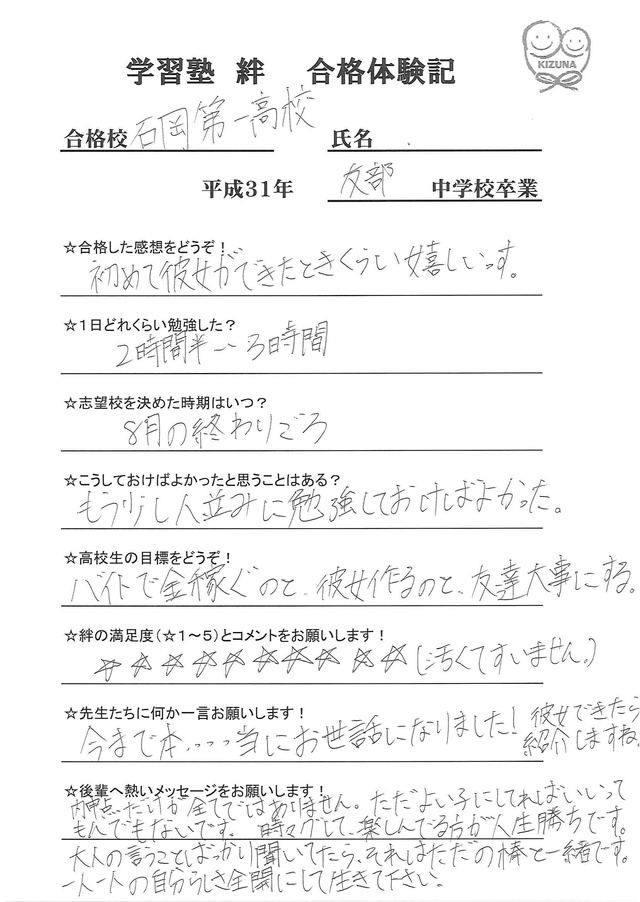 学習塾 絆 合格体験記
KIZUNA
合格校 石岡第一高校 氏名
平成31年 友部 中学校卒業
☆合格した感想をどうぞ！
初めて彼女ができたときくらい嬉しいっす。
☆1日どれくらい勉強した？
2時間半〜3時間
☆志望校を決めた時期はいつ？
8月の終わりごろ
☆こうしておけばよかったと思うことはある？
もう少し人並みに勉強しておけばよかった。
☆高校生の目標をどうぞ！
バイトで金稼ぐのと、彼女作るのと、友達大事にする。
☆絆の満足度（☆1～5）とコメントをお願いします！
☆☆☆☆☆☆☆☆☆☆（汚くてすいません。）
☆先生たちに何か一言お願いします！
今まで本、、、、当にお世話になりました！彼女できたら
紹介しますね。
☆後輩へ熱いメッセージをお願いします！
内申点だけが全てではありません。ただよい子にしてればいいって
もんでもないです。時々して、楽しんでる方が人生勝ちです。
大人の言うことばっかり聞いてたら、それはただの棒と一緒です。
一人一人の自分らしさ全開にして生きて下さい。